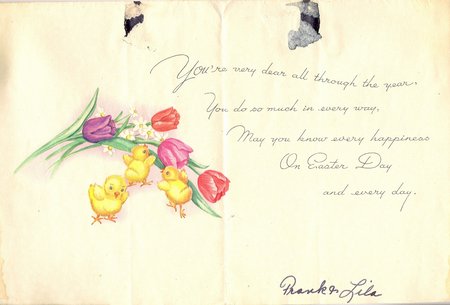 You're very dear all through the year,
You do so much in every way,
May you know every happiness
On Easter Day
and every day.
Frank & Lila